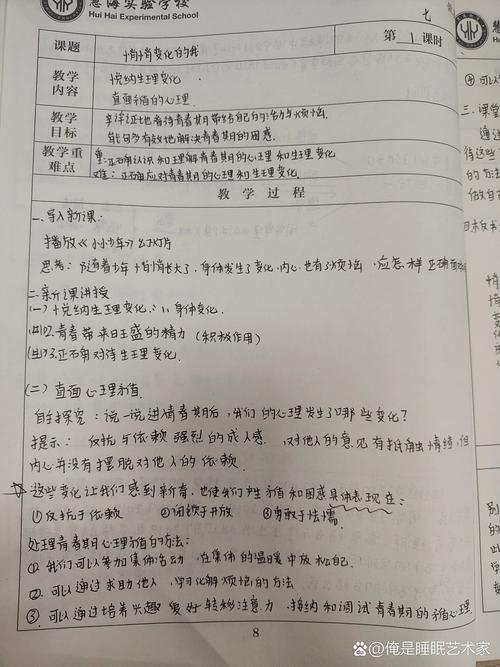 慧海实验学校
Hui Hai Experimental School
七
课题 悄悄变化的我 第1课时
教学内容 悦纳生理变化
直面矛盾的心理.
教学目标 辛评证地看待青春期带给自己的活力与烦恼.
能自多有效地解决青春期的困惑.
教学重难点 重:正确认识和理解青春期的心理和生理变化
难:正确应对青春期的心理和生理变化.
教学过程
一.导入新课:
播放《小小少年》幻灯片
思考:随着少年悄悄长大了,身体发生了变化,内心也有了烦恼,应怎样正确面对
二.新课讲授
(一)悦纳生理变化.
1.身体变化.
2.青春带来旺盛的精力(积极作用)
3.正确对待生理变化.
(二)直面心理矛盾.
自主探究:说一说进青春期后,我们的心理发生了哪些变化?
提示:反抗与依赖 强烈的成人感.对他人的意见有抵触情绪,但
内心并没有摆脱对他人的依赖.
这些变化让我们感到新奇,也使我们产生矛盾和困惑具体表现在:
①反抗于依赖 ②闭锁于开放 ③勇敢于怯懦
处理青春期心理矛盾的方法:
①我们可以参加集体活动,在集体的温暖中放松自己.
②可以通过求助他人,学习化解烦恼的方法
③可以通过培养兴趣爱好转移注意力,接纳和调试青春期的矛盾心理
8
④可以
三.课堂
通过
待这些
的方法
做自
头条 @俺是睡眠艺术家